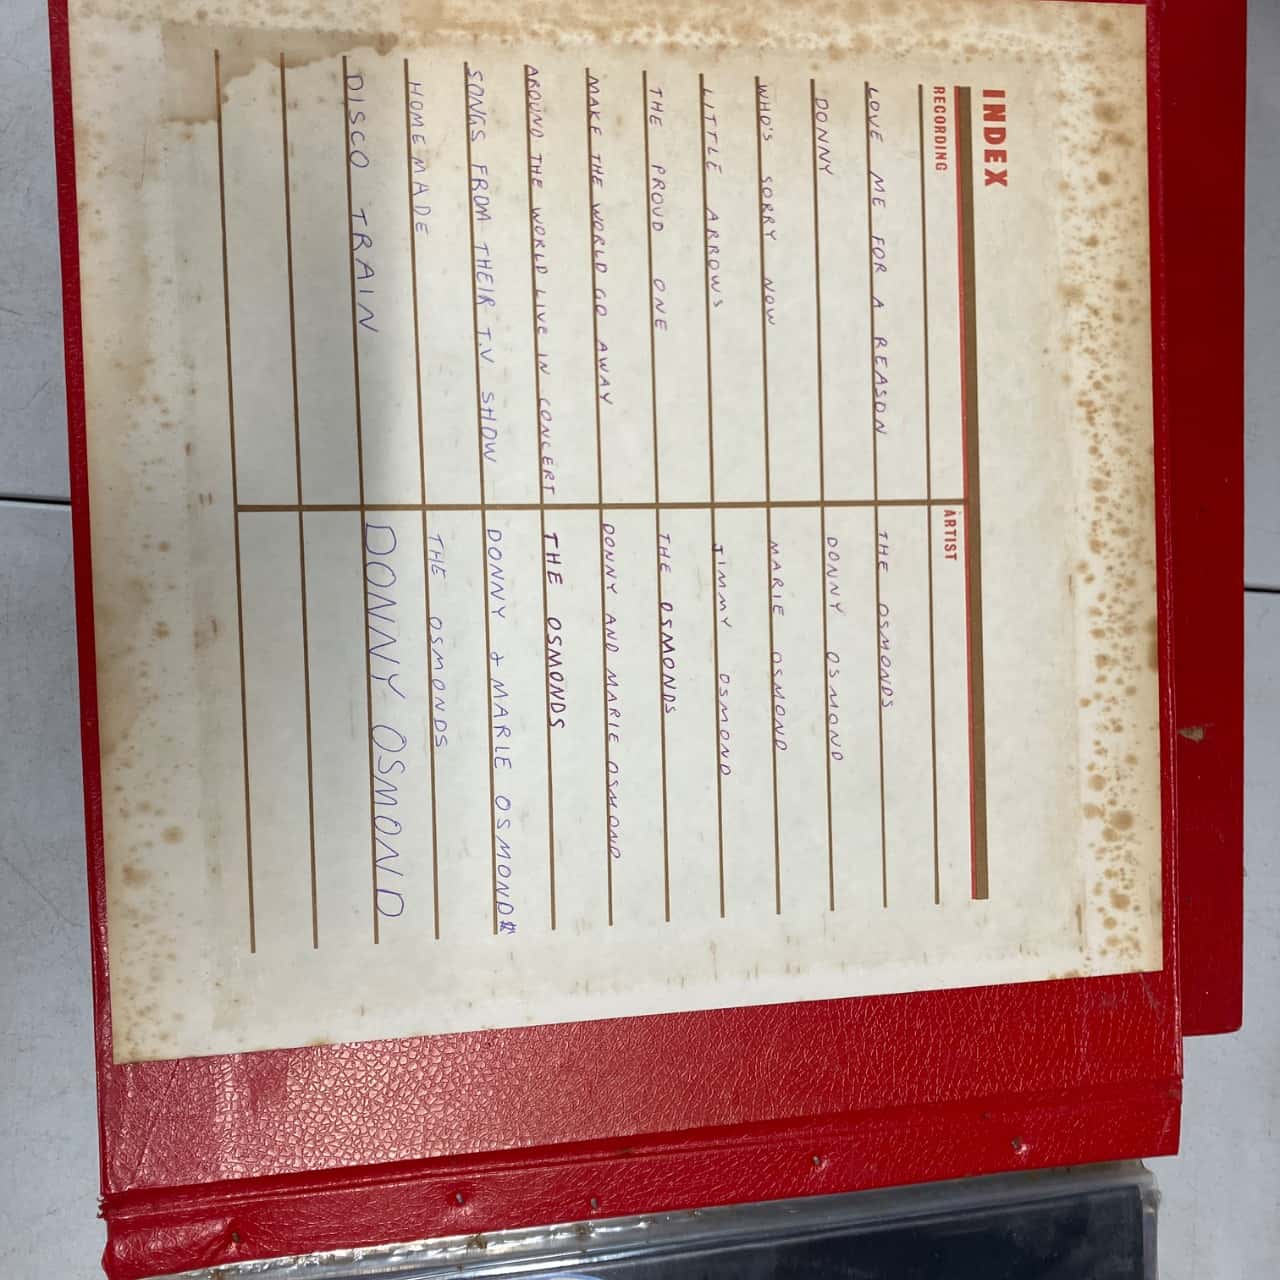 INDEX
RECORDING ARTIST
LOVE ME FOR A REASON THE OSMONDS
DONNY DONNY OSMOND
WHO'S SORRY NOW MARIE OSMOND
LITTLE ARROWS JIMMY OSMOND
THE PROUD ONE THE OSMONDS
MAKE THE WORLD GO AWAY DONNY AND MARIE OSMOND
AROUND THE WORLD LIVE IN CONCERT THE OSMONDS
SONGS FROM THEIR T.V SHOW DONNY & MARIE OSMOND
HOMEMADE THE OSMONDS
DISCO TRAIN DONNY OSMOND